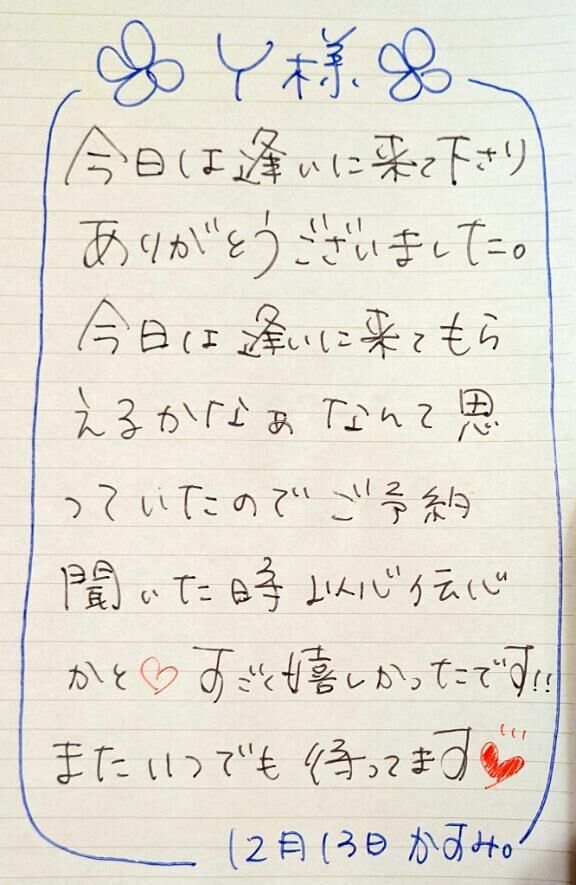 Y様
今日は逢いに来て下さり
ありがとうございました。
今日は逢いに来てもら
えるかなぁなんて思
っていたのでご予約
聞いた時以心伝心
かと♡すごく嬉しかったです!!
またいつでも待ってます♥
12月13日かすみ。